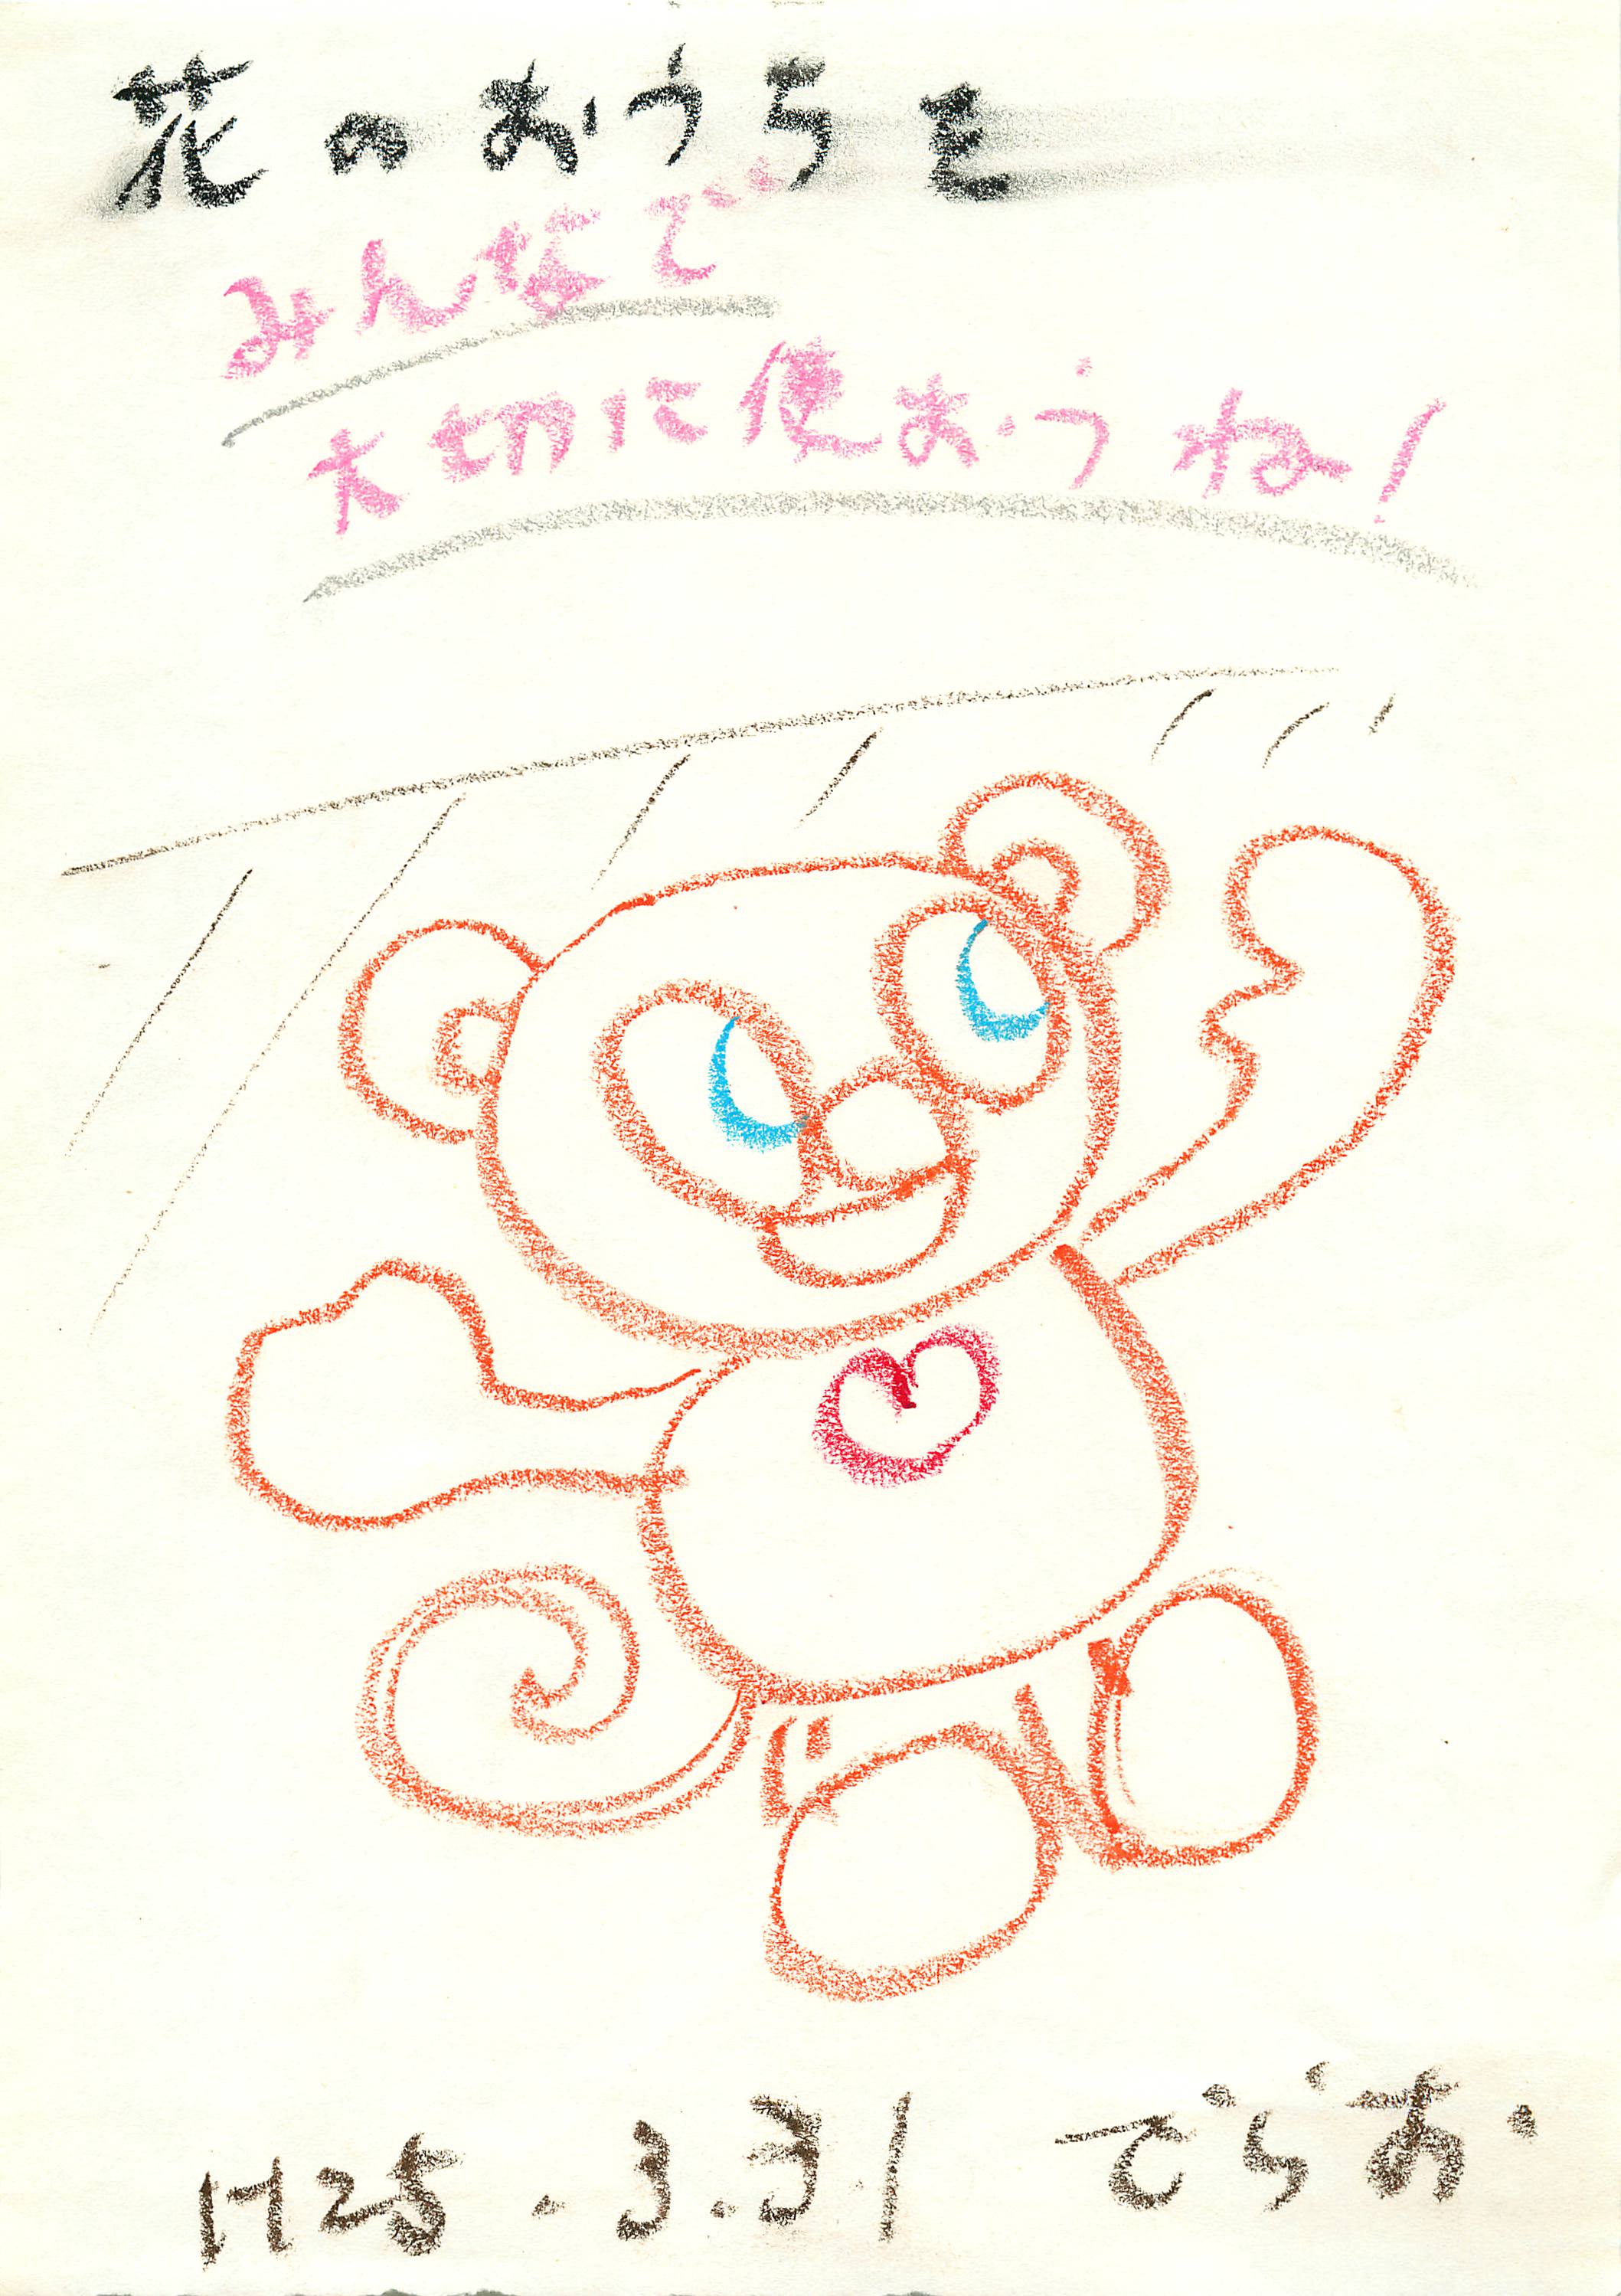 花のおうちを
みんなで
大切に使おうね!
H25.3.31 でらお